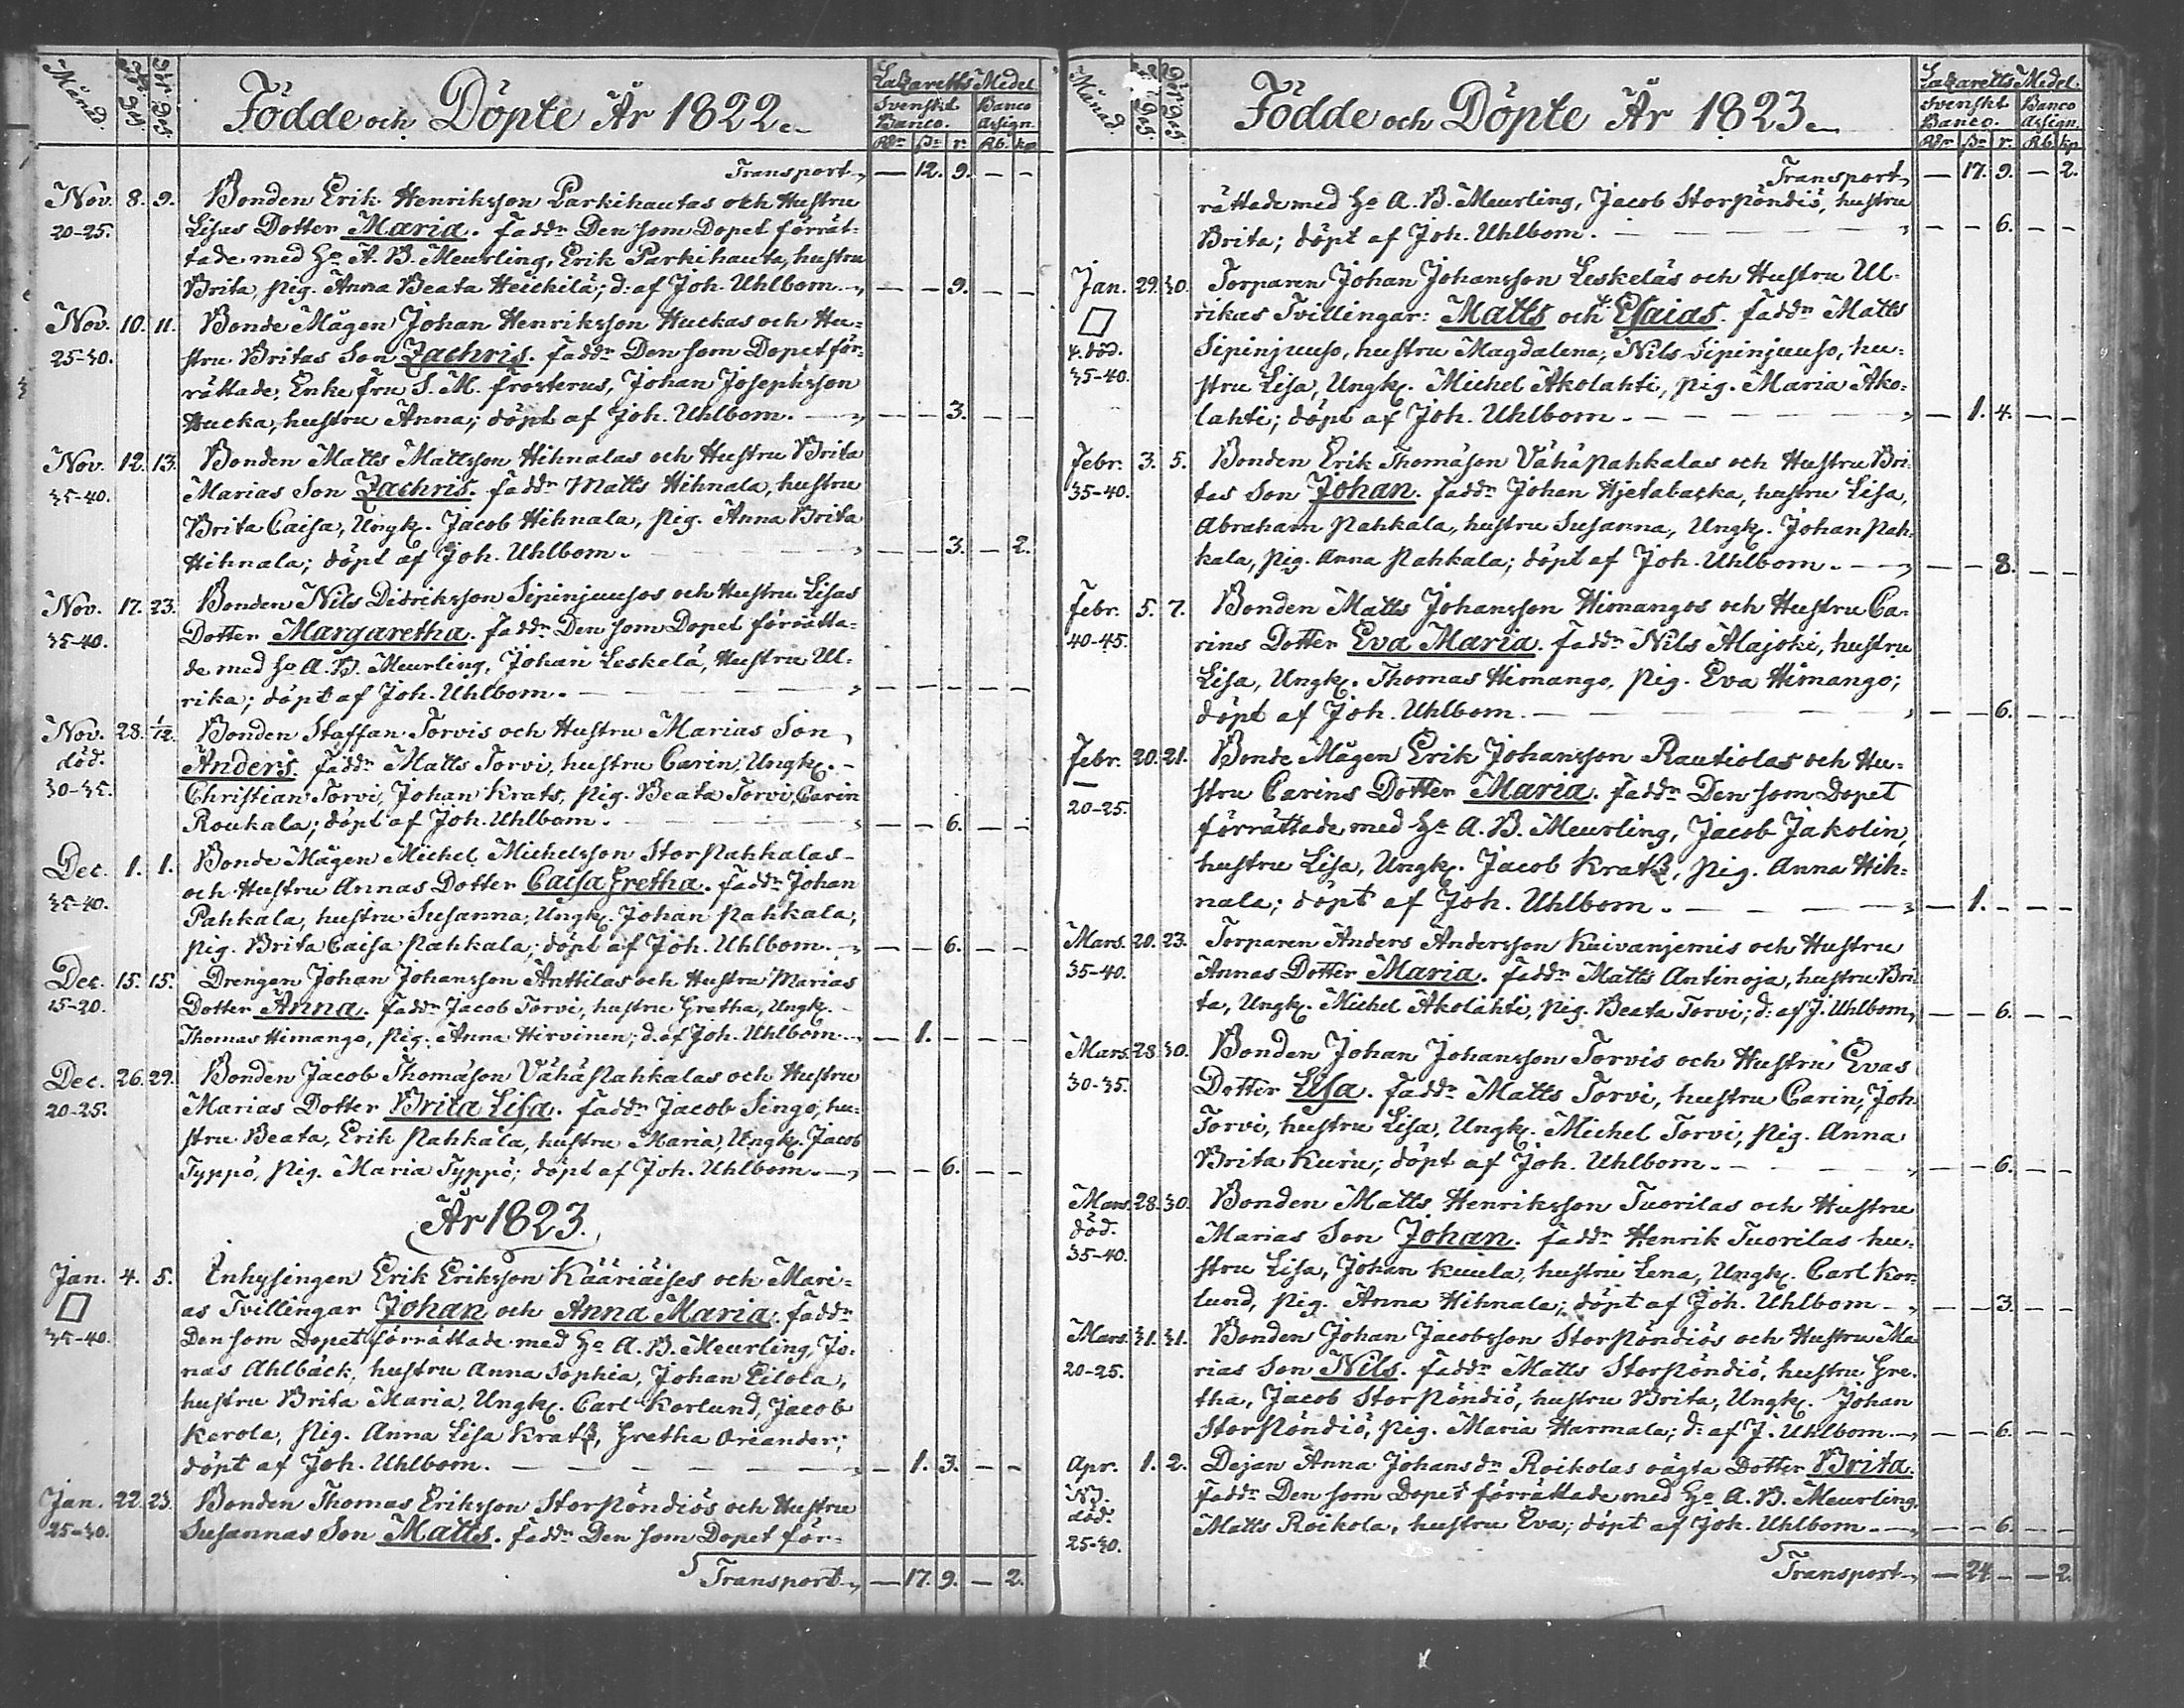 Månad. Föd. Dag. Döp. Dag. Födde och Döpte År 1822. Lazaretts Medel
Svenskt Banco. Banco Assign.
Rdr sz r. Rb. kp
Transport — 12. 9. — —
Nov. 8. 9. Bonden Erik Henriksson Parkihautas och Hustru
20-25. Lisas Dotter Maria. Faddr Den som Dopet förrät-
tade med Hr A. B. Meurling, Erik Parkihauta, hustru
Brita, Pig. Anna Beata Heickilä; d: af Joh. Uhlbom. — — 9. — —
Nov. 10. 11. Bonde Mågen Johan Henriksson Huckas och Hu-
25-30. stru Britas Son Zachris. Faddr Den som Dopet för-
rättade, Enke Fru S. M. Frosterus, Johan Josephsson
Hucka, hustru Anna; döpt af Joh. Uhlbom. — — — 3. — —
Nov. 12. 13. Bonden Matts Mattsson Hihnalas och Hustru Brita
35-40. Marias Son Zachris. Faddr Matts Hihnala, hustru
Brita Caisa, Ungk. Jacob Hihnala, Pig. Anna Brita
Hihnala; döpt af Joh. Uhlbom. — — 3. — 2.
Nov. 17. 23. Bonden Nils Didriksson Sipinjuusos och Hustru Lisas
35-40. Dotter Margaretha. Faddr Den som Dopet förrätta-
de med Hr A. B. Meurling, Johan Leskelä, Hustru Ul-
rika; döpt af Joh. Uhlbom. — — — — —
Nov. 28. 1/12. Bonden Staffan Torvis och Hustru Marias Son
död. Anders. Faddr Matts Torvi, hustru Carin, Ungk.
30-35. Christian Torvi, Johan Krats, Pig. Beata Torvi, Carin
Roukala; döpt af Joh. Uhlbom. — — 6. — —
Dec. 1. 1. Bonde Mågen Michel Michelsson StorPahkalas
35-40. och Hustru Annas Dotter Caisa Gretha. Faddr Johan
Pahkala, hustru Susanna, Ungk. Johan Pahkala,
Pig. Brita Caisa Pahkala; döpt af Joh. Uhlbom. — — 6. — —
Dec. 15. 15. Drengen Johan Johansson Anttilas och Hustru Marias
15-20. Dotter Anna. Faddr Jacob Torvi, hustru Gretha, Ungk.
Thomas Himango, Pig. Anna Hirvinen; d. af Joh. Uhlbom. — 1. — — —
Dec. 26. 29. Bonden Jacob Thomason VähäPahkalas och Hustru
20-25. Marias Dotter Brita Lisa. Faddr Jacob Singo, hu-
stru Beata, Erik Pahkala, hustru Maria, Ungk. Jacob
Typpö, Pig. Maria Typpö; döpt af Joh. Uhlbom. — — 6. — —
År 1823.
Jan. 4. 5. Inhysingen Erik Eriksson Kääriäises och Mari-
as Tvillingar Johan och Anna Maria. Faddr
35-40. Den som Dopet förrättade med Hr A. B. Meurling, Jo-
nas Ahlbäck, hustru Anna Sophia, Johan Eilola,
hustru Brita Maria, Ungk. Carl Korlund, Jacob
Kerola, Pig. Anna Lisa Kratz, Gretha Oriander;
döpt af Joh. Uhlbom. — 1. 3. — —
Jan. 22. 23. Bonden Thomas Eriksson StorPöndiös och Hustru
25-30. Susannas Son Matts. Faddr Den som Dopet för-
Transport — 17. 9. — 2.
Månad. Föd. Dag. Döp. Dag. Födde och Döpte År 1823. Lazaretts Medel.
Svenskt Banco. Banco Assign.
Rdr sz r. Rb. kp
Transport — 17. 9. — 2.
rättade med Hr A. B. Meurling, Jacob StorPöndiö, hustru
Brita; döpt af Joh. Uhlbom. — — 6. — —
Jan. 29. 30. Torparen Johan Johansson Leskeläs och Hustru Ul-
rikas Tvillingar: Matts och Esaias. Faddr Matts
†. död. Sipinjuuso, hustru Magdalena, Nils Sipinjuuso, hu-
35-40. stru Lisa, Ungk. Michel Akolahti, Pig. Maria Ako-
lahti; döpt af Joh. Uhlbom. — 1. 4. — —
Febr. 3. 5. Bonden Erik Thomason VähäPahkalas och Hustru Bri-
35-40. tas Son Johan. Faddr Johan Hjetabacka, hustru Lisa,
Abraham Pahkala, hustru Susanna, Ungk. Johan Pah-
kala, Pig. Anna Pahkala; döpt af Joh. Uhlbom. — — 8. — —
Febr. 5. 7. Bonden Matts Johansson Himangos och Hustru Ca-
40-45. rins Dotter Eva Maria. Faddr Nils Alajoki, hustru
Lisa, Ungk. Thomas Himango, Pig. Eva Himango;
döpt af Joh. Uhlbom. — — 6. — —
Febr. 20. 21. Bonde Mågen Erik Johansson Rautiolas och Hu-
20-25. stru Carins Dotter Maria. Faddr Den som Dopet
förrättade med Hr A. B. Meurling, Jacob Jakolin,
hustru Lisa, Ungk. Jacob Kratz, Pig. Anna Hih-
nala; döpt af Joh. Uhlbom. — 1. — — —
Mars. 20. 23. Torparen Anders Andersson Kaivanjemis och Hustru
35-40. Annas Dotter Maria. Faddr Matts Antinoja, hustru Bri-
ta, Ungk. Michel Akolahti, Pig. Beata Torvi; d: af J. Uhlbom, — — 6. — —
Mars. 28. 30. Bonden Johan Johansson Torvis och Hustru Evas
30-35. Dotter Lisa. Faddr Matts Torvi, hustru Carin, Joh.
Torvi, hustru Lisa, Ungk. Michel Torvi, Pig. Anna
Brita Kuru; döpt af Joh. Uhlbom. — — 6. — —
Mars. 28. 30. Bonden Matts Henriksson Tuorilas och Hustru
död. Marias Son Johan. Faddr Henrik Tuorilas hu-
35-40. stru Lisa, Johan Kuula, hustru Lena, Ungk. Carl Kor-
lund, Pig. Anna Hihnala; döpt af Joh. Uhlbom — — 3. — —
Mars. 31. 31. Bonden Johan Jacobsson StorPöndiös och Hustru Ma-
20-25. rias Son Nils. Faddr Matts StorPöndiö, hustru Gre-
tha, Jacob StorPöndiö, hustru Brita, Ungk. Johan
StorPöndiö, Pig. Maria Harmala; d: af J. Uhlbom. — — 6. — —
Apr. 1. 2. Dejan Anna Johansdr Roikolas oägta Dotter Brita.
död. Faddr Den som Dopet förrättade med Hr A. B. Meurling,
25-30. Matts Roikola, hustru Eva; döpt af Joh. Uhlbom. — — 6. — —
Transport — 24. — — 2.